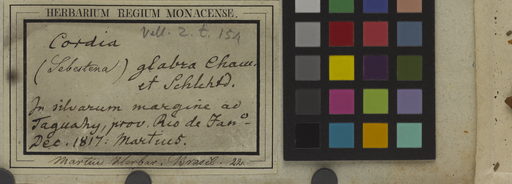 HERBARIUM REGIUM MONACENSE.
Vell. 2. t. 151
Cordia
(Sebestena) glabra Cham.
et Schlchtd.
In silvarum margine ad
Taguahy, prov. Rio de Jano.
Dec. 1817: Martius.
Martii Herbar. Brasil.